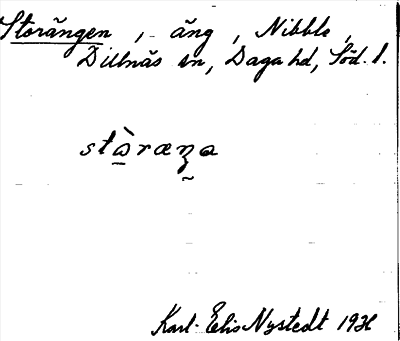 Storängen, äng, Nibble,
Dillnäs sn, Daga hd, Söd. l.
Karl-Elis Nystedt